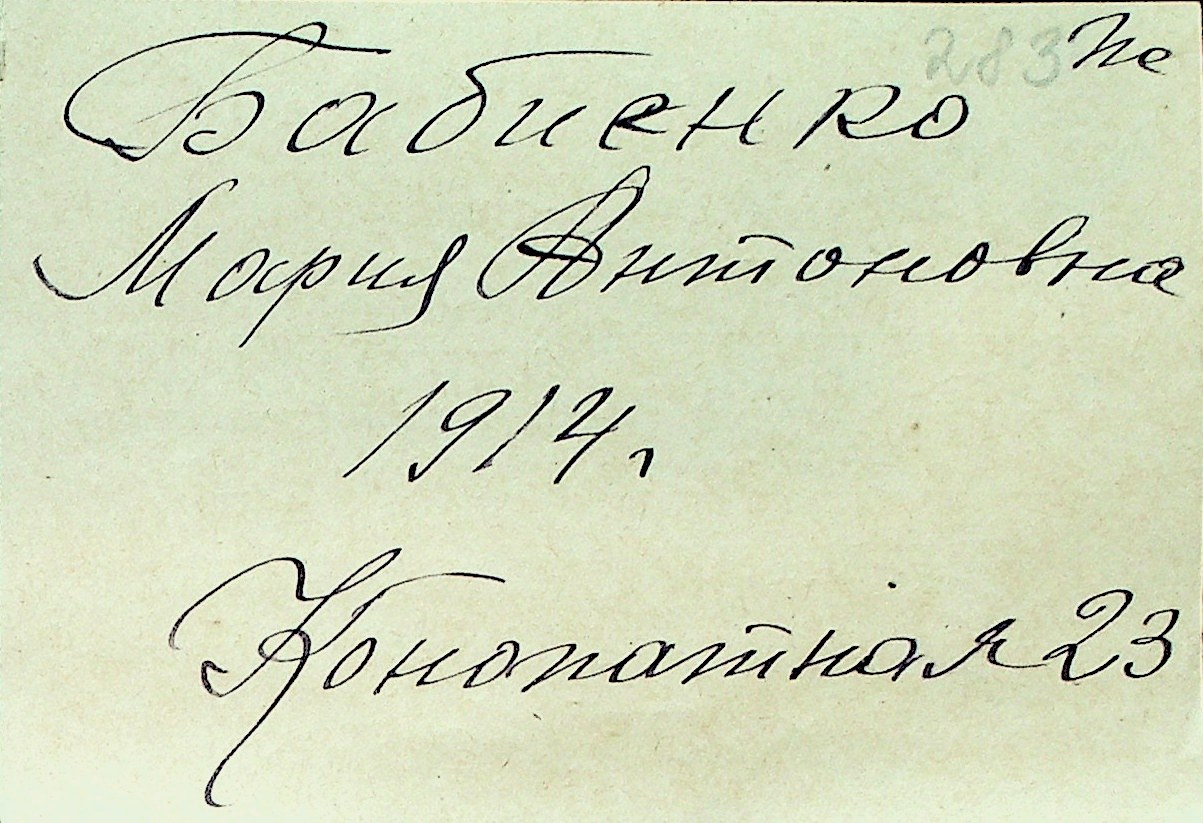 283 Не
Бабиенко
Мария Антоновна
1914 г
Конопатная 23